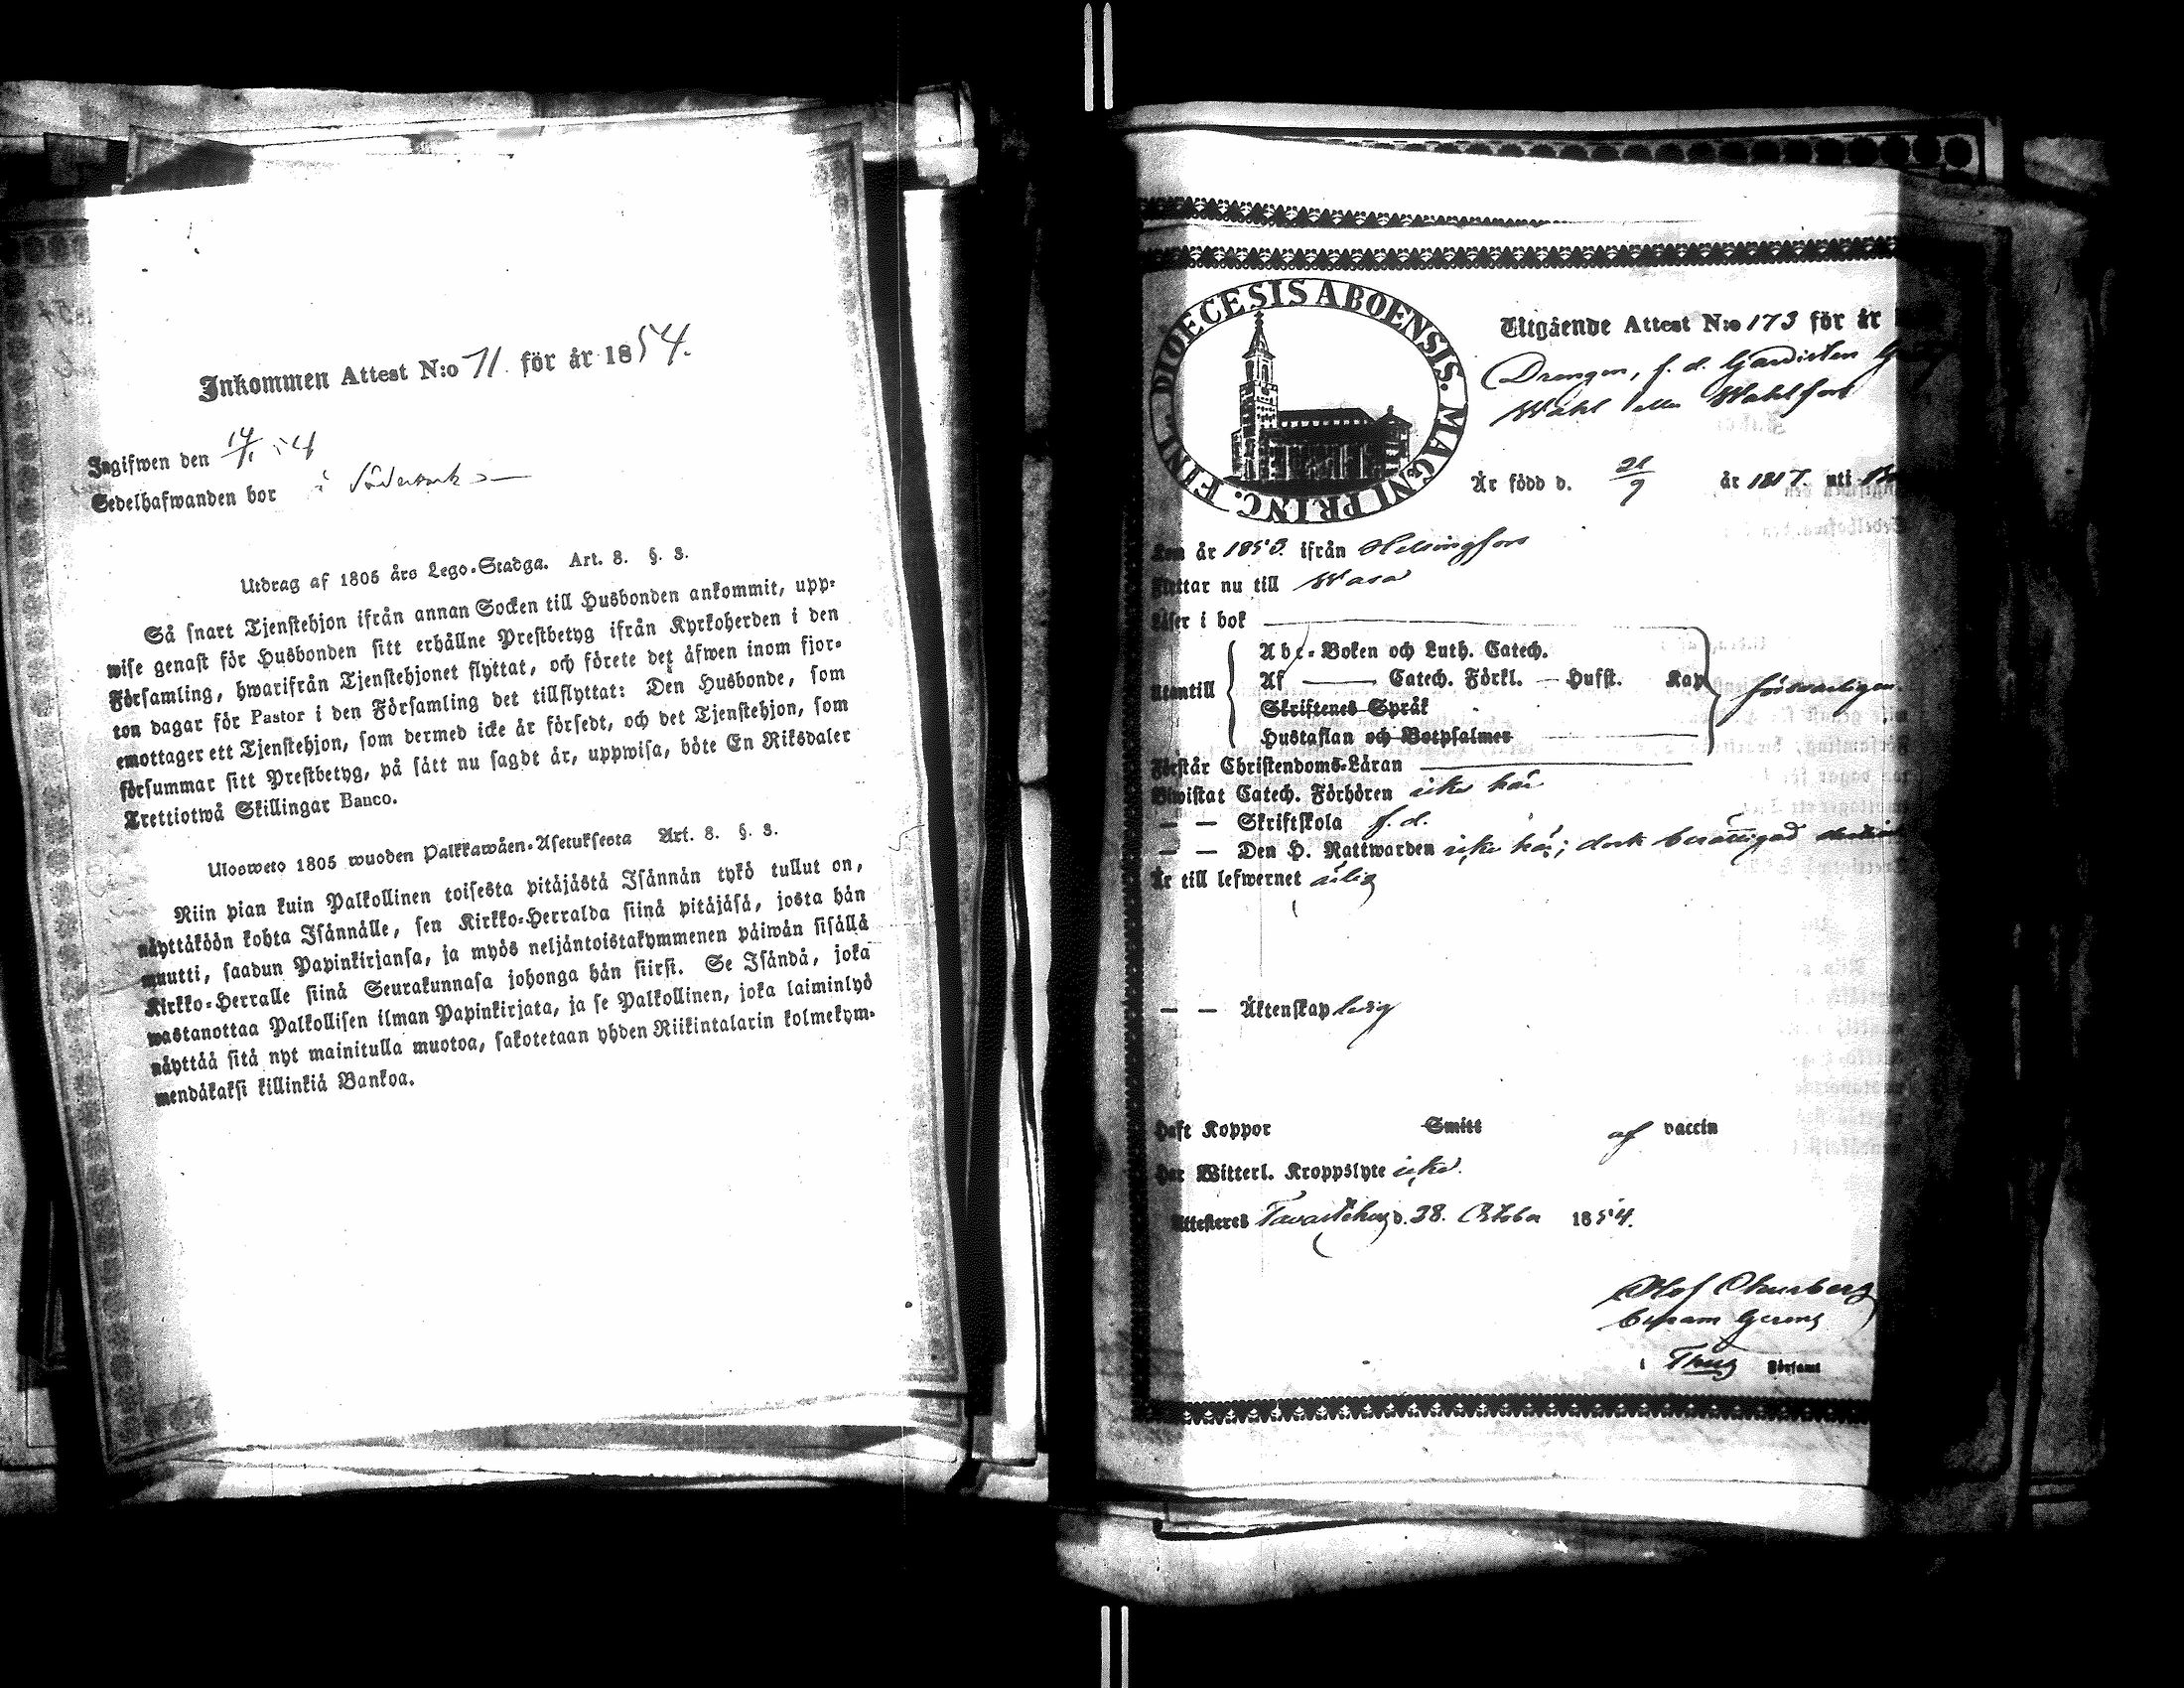 Inkommen Attest N:o 71. för år 1854.
Ingifwen den 14/1 54
Sedelhafwanden bor i
Utdrag af 1805 års Lego-Stadga. Art. 8. §. 3.
Så snart Tjenstehjon ifrån annan Socken till Husbonden ankommit, upp-
wise genast för Husbonden sitt erhållne Prestbetyg ifrån Kyrkoherden i den
Församling, hwarifrån Tjenstehjonet flyttat, och förete det åfwen inom fjor-
ton dagar för Pastor i den Församling det tillflyttat: Den Husbonde, som
emottager ett Tjenstehjon, som dermed icke år försedt, och det Tjenstehjon, som
försummar sitt Prestbetyg, på sått nu sagdt år, uppwisa, böte En Riksdaler
Trettiotwå Skillingar Banco.
Ulosweto 1805 wuoden Palkkawåen-Asetuksesta Art. 8. §. 3.
Niin pian kuin Palkollinen toisesta pitåjåstå Isånnån tykö tullut on,
nåyttåköön kohta Isånnålle, sen Kirkko-Herralda siinå pitåjåså, josta hån
muutti, saadun Papinkirjansa, ja myös neljåntoistakymmenen påiwån sisållå
Kirkko-Herralle siinå Seurakunnasa johonga hån siirsi. Se Isåndå, joka
wastanottaa Palkollisen ilman Papinkirjata, ja se Palkollinen, joka laiminlyö
nåyttåå sitå nyt mainitulla muotoa, sakotetaan yhden Riikintalarin kolmekym-
mendåkaksi killinkiå Bankoa.
DIOECESIS ABOENSIS. MAGNI PRINC. FINL.
Utgående Attest N:o 173 för år
Drengen, f. d. Gardisten
Wahl eller Wahlfors
Är född d. 9 år 1817. uti
Kom år 1853. ifrån Helsingfors
Flyttar nu till Wasa
Läser i bok
Abc-Boken och Luth. Catech.
Utantill Af Catech. Förkl. Husst. Kap försvarligen.
Skriftenes Språk
Hustaflan och Botpsalmer
Förstår Christendoms-Låran
Biwistat Catech. Förhören icke här
— — Skriftskola f. d.
— — Den H. Nattwarden icke här; dock berättigad
Är till lefwernet ärlig
— — Åktenskap ledig
Haft Koppor Smitt af vaccin
Har Witterl. Kroppslyte icke.
Attesteres Tavastehus d. 28. October 1854.
Olof
i Församl